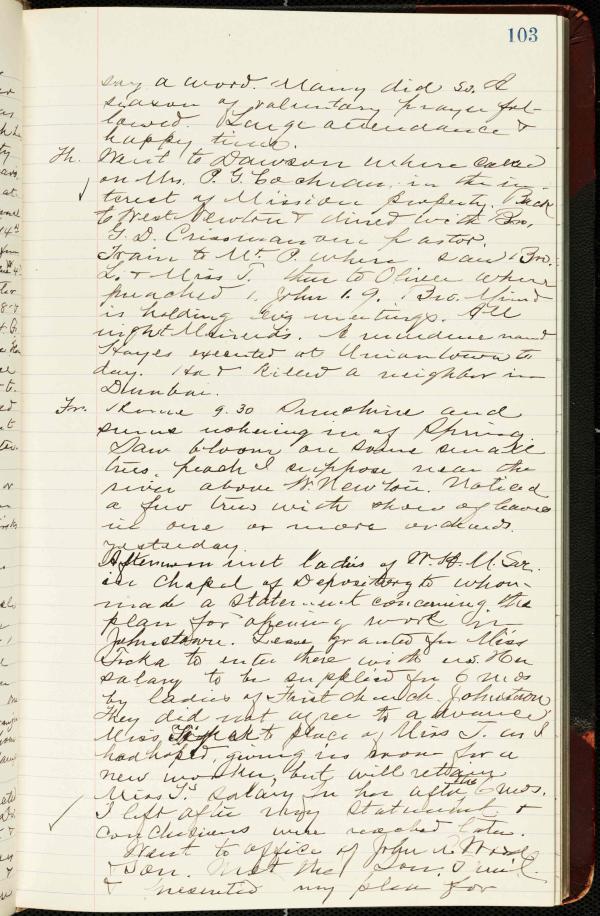 103
say a word. Many did so. A
season of voluntary prayer fol-
lowed. Large attendance &
happy time.
Th. Went to Dawson where called
on Mrs. P. G. Cochran in the in-
terest of Mission property. Back
to West Newton & dined with Bro.
G. D. Crissman our pastor.
Train to Mt. P. where saw Bro.
L. & Miss T. then to Oliver where
preached 1. John 1. 9. Bro.
is holding evg meetings. All
night. A murderer named
Hayes executed at Uniontown to
day. Had killed a neighbor in
Dunbar.
Fr. Home 9.30 Sunshine and
seems ushering in of Spring.
Saw bloom on some small
trees, peach I suppose near the
river above W. Newton. Noticed
a few trees with show of leaves
in one or more orchards.
yesterday.
Afternoon met ladies of W. H. M. Soc.
in chapel of Depository to whom
made a statement concerning the
plan for opening work in
Johnstown. Leave granted for Miss
to enter there with us. Her
salary to be supplied for 6 mos
by ladies of First Church. Johnstown
They did not agree to advance
Miss to place of Miss T. as I
had hoped, giving us room for a
new worker, but will retain
Miss T's salary for her after the 6 mos.
I left after my statement &
conclusions were reached later.
Went to office of John A. Wood
& Son. Met the Son,
& presented my plan for